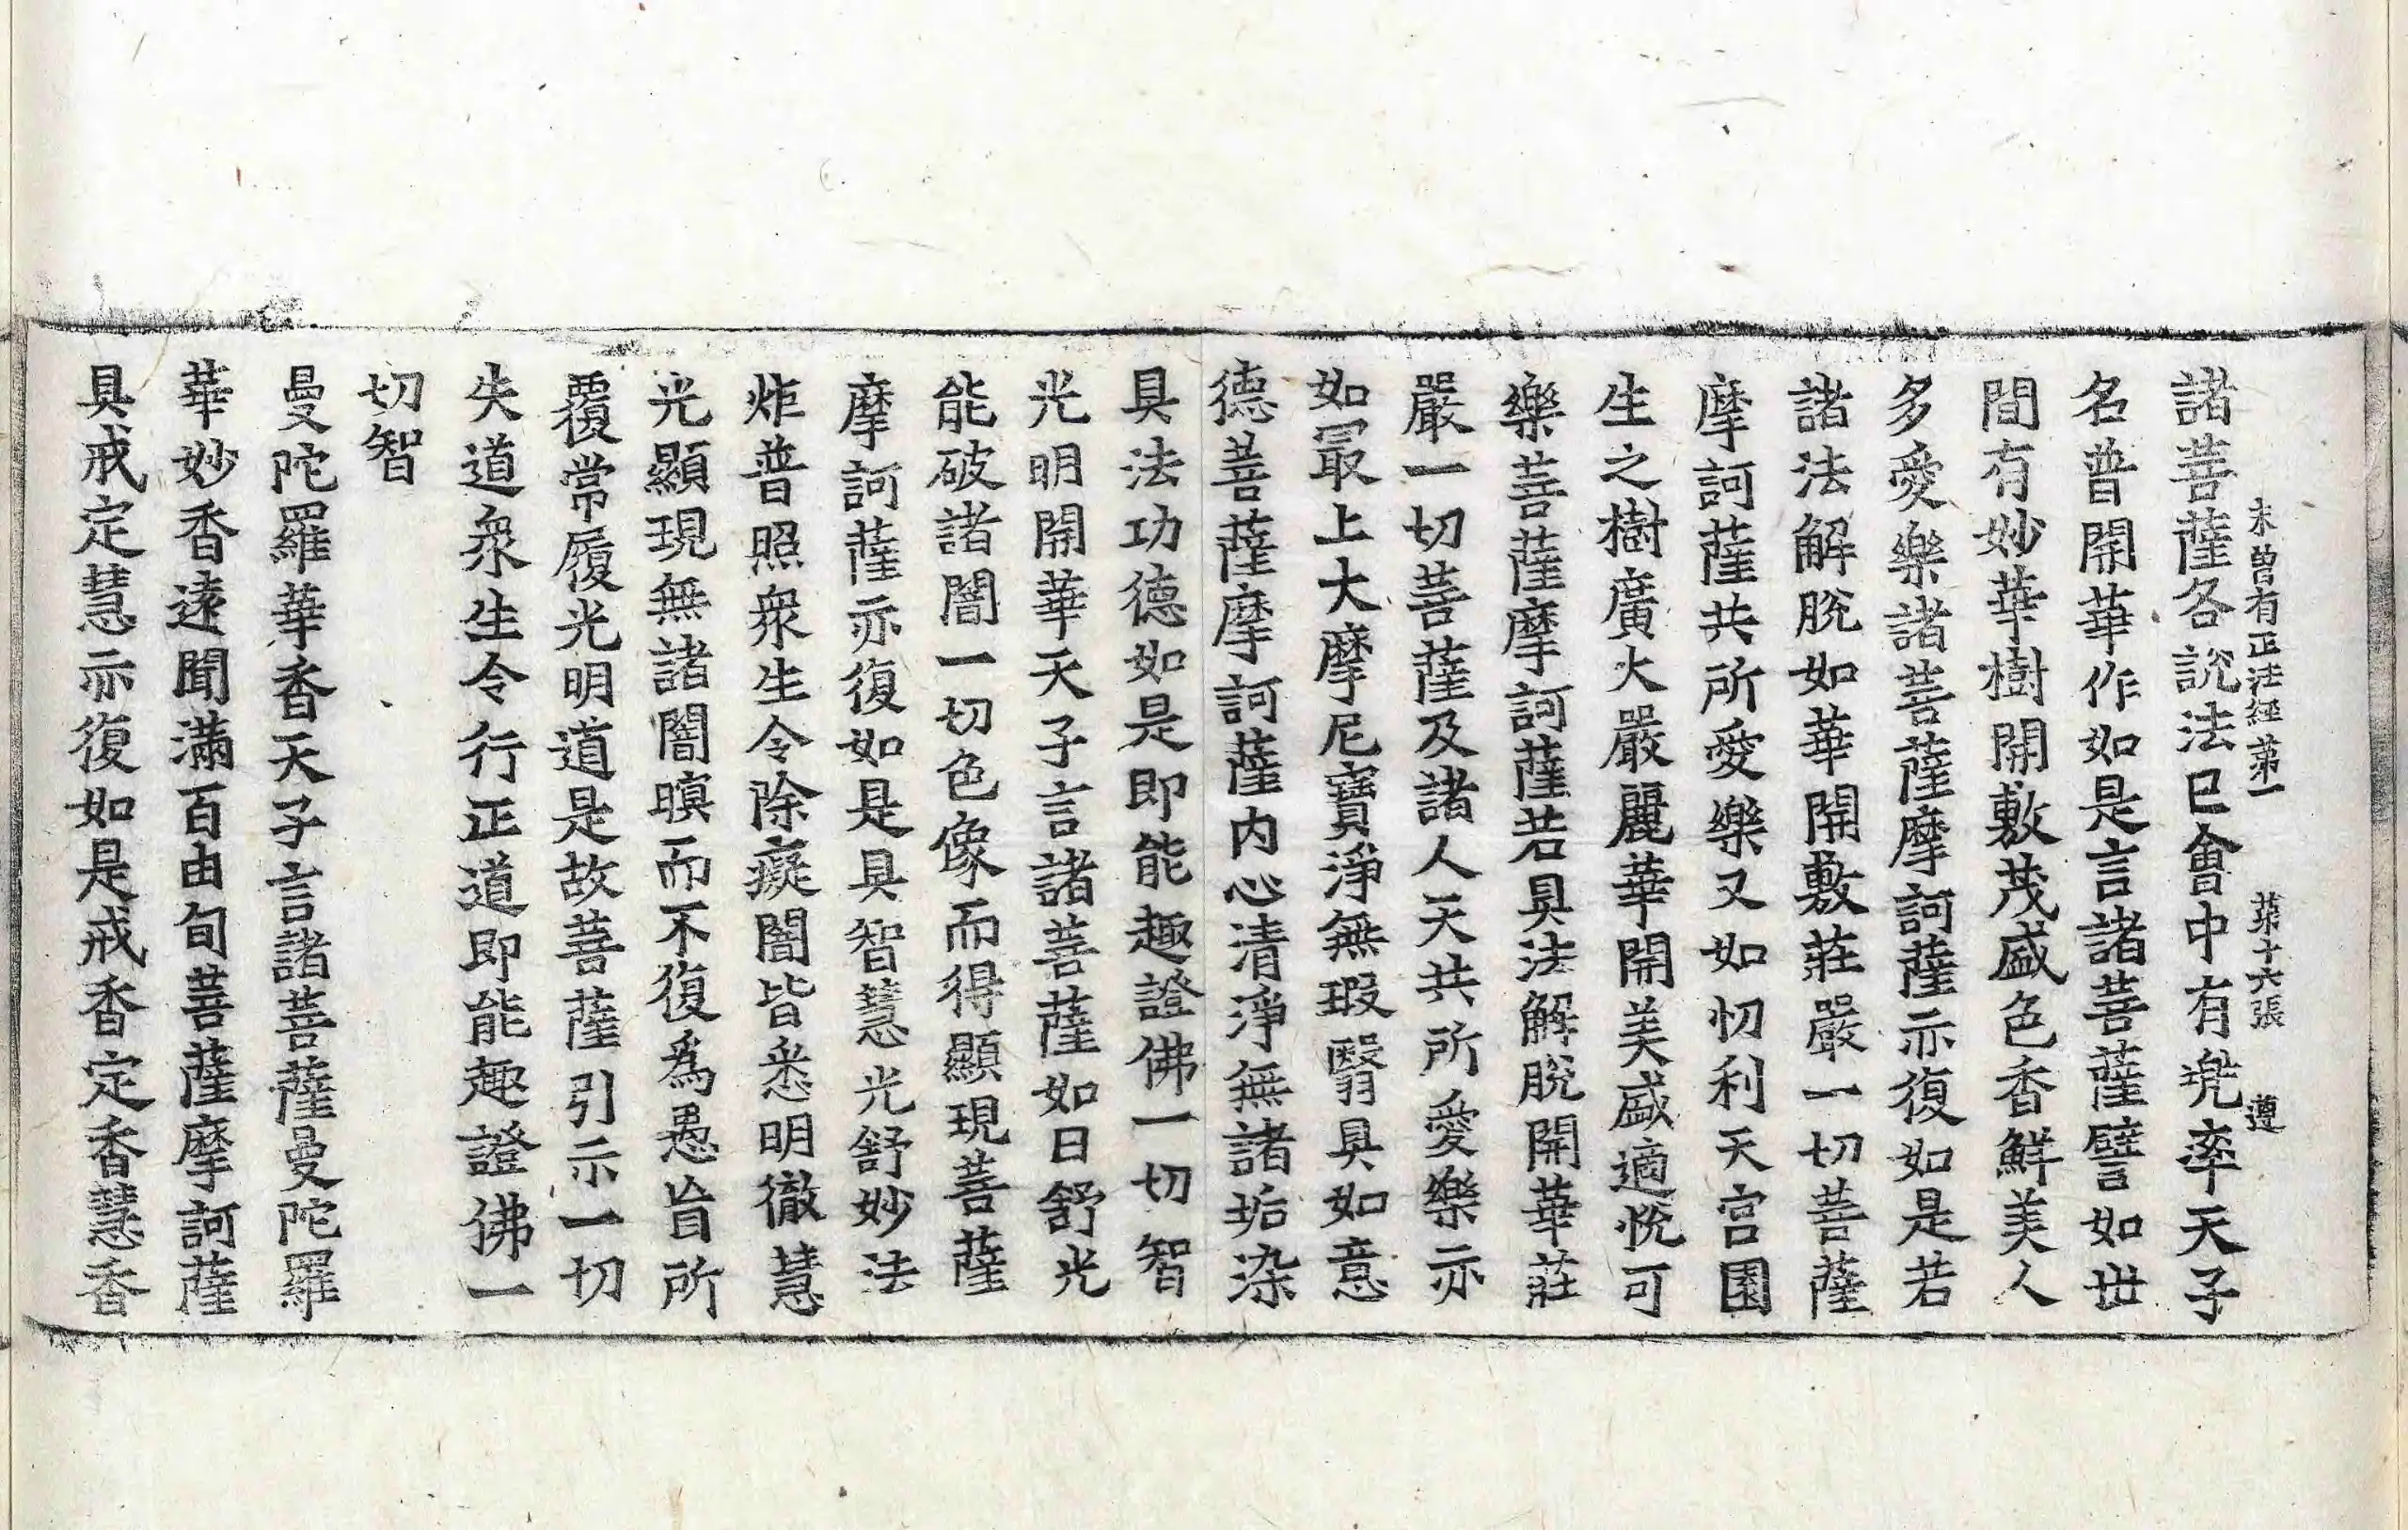 未曾有正法經第一 第十六張 遵
諸菩薩各說法已會中有兠率天子
名普開華作如是言諸菩薩譬如世
間有妙華樹開敷茂盛色香鮮美人
多愛樂諸菩薩摩訶薩亦復如是若
諸法解脫如華開敷莊嚴一切菩薩
摩訶薩共所愛樂又如忉利天宮園
生之樹廣大嚴麗華開美盛適悅可
樂菩薩摩訶薩若具法解脫開華莊
嚴一切菩薩及諸人天共所愛樂亦
如最上大摩尼寶淨無瑕翳具如意
德菩薩摩訶薩內心清淨無諸垢染
具法功德如是即能趣證佛一切智
光明開華天子言諸菩薩如日舒光
能破諸闇一切色像而得顯現菩薩
摩訶薩亦復如是具智慧光舒妙法
炸普照衆生令除癡闇皆悉明徹慧
光顯現無諸闇暝而不復爲愚盲所
覆常履光明道是故菩薩引示一切
失道衆生令行正道即能趣證佛一
切智
曼陀羅華香天子言諸菩薩曼陀羅
華妙香遠聞滿百由旬菩薩摩訶薩
具戒定慧亦復如是戒香定香慧香